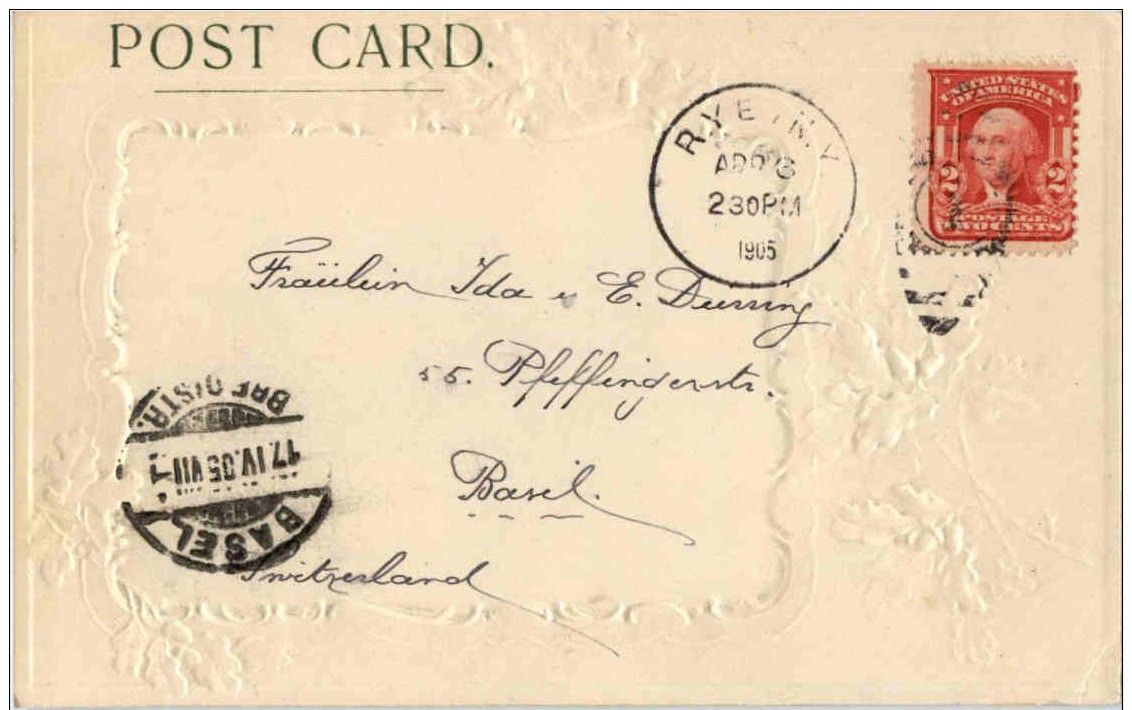 POST CARD.
RYE, N.Y.
APR 6
230PM
1905
UNITED STATES
OF AMERICA
2 2
POSTAGE
TWO CENTS
Fräulein Ida u E. Durring
55. Pfeffingerstr.
Basel.
Switzerland
BASEL
17.IV.05 VII
BRF DISTR.